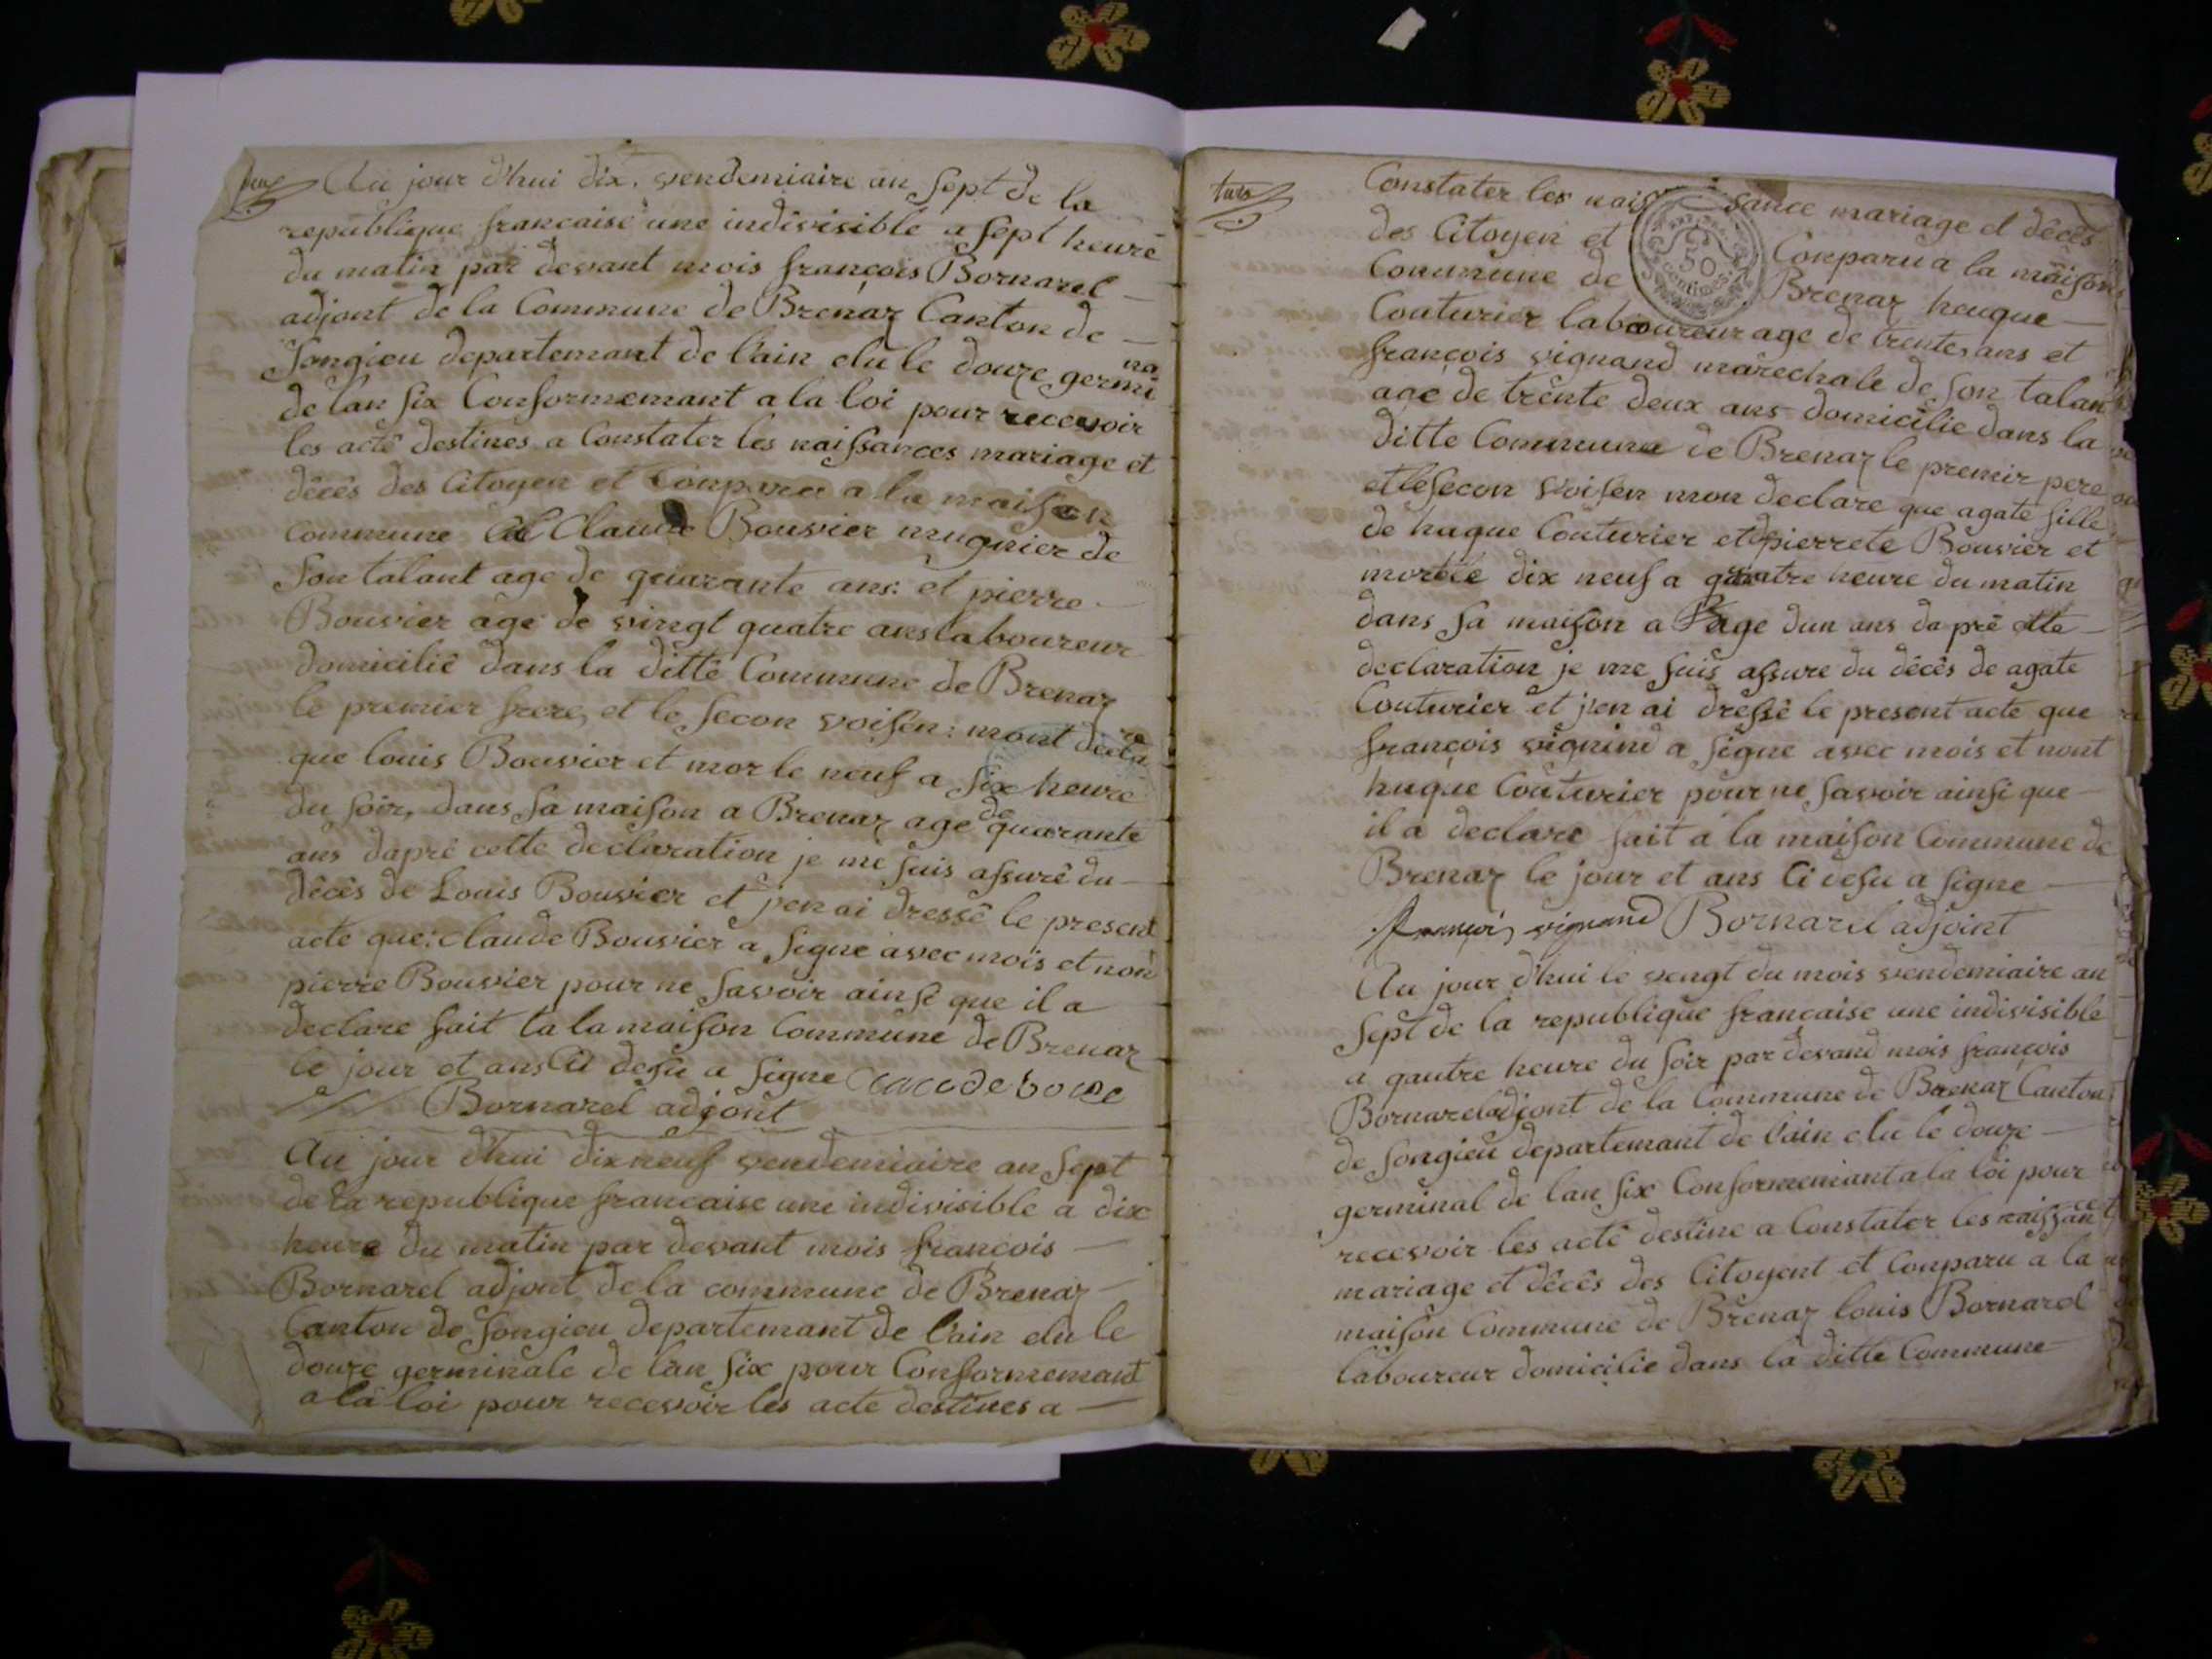 deux
Au jour d'hui dix, vendemiaire an sept de la
republique francaise une indivisible a sept heure
du matin par devant mois françois Bornarel
adjont de la Commune de Brenaz Canton de
Songieu departemant de l'ain elu le douze germi na
de lan six Conformemant a la loi pour recevoir
les actê destines a Constater les naissances mariage et
dêcês des Citoyen et Conparu a la maison
commune Claude Bouvier mugnier de
son talant age de quarante ans: et pierre
Bouvier age de vingt quatre ans laboureur
domicilié dans la ditte Commune de Brenaz
le premier frere, et le secon voisen: mont decla re
que louis Bouvier et mor le neuf a six heure
du soir, dans sa maison a Brenaz age de quarante
ans daprê cette declaration je me suis assurê du
dêcês de Louis Bouvier et j'en ai dressê le present
acte que: claude Bouvier a signe avec mois et non
pierre Bouvier pour ne savoir ainsi que il a
declare fait ta la maison Commune de Brenaz
le jour et ans Ci desu a signe
Bornarel adjont
Au jour d'hui dix neuf vendemiaire an sept
de la republique francaise une indivisible a dix
heure du matin par devant mois françois
Bornarel adjont de la commune de Brenaz
Canton de Songieu departemant de l'ain elu le
douze germinale de lan six pour Conformemant
a la loi pour recevoir les acte destines a
trois
Constater les naissance mariage et dêcês
des Citoyen et Conparu a la maison
Commune de Brenaz heugue
50
centimes
Couturier laboureur age de trente, ans et
françois vignand marechale de son talan
age de trente deux ans domicilie dans la
ditte Commune de Brenaz le premir pere
et le secon voisen mon declare que agate fille
de hugue Couturier et de pierrete Bouvier et
morte le dix neuf a quatre heure du matin
dans sa maison a l'age dun ans da prê ette
declaration je me suis assure du dêcês de agate
Couturier et j'en ai dressê le present acte que
françois vignind a signe avec mois et nont
hugue Couturier pour ne savoir ainsi que
il a declare fait a la maison Commune de
Brenaz le jour et ans Ci desu a signe
françois vignand Bornarel adjoint
Au jour d'hui le vengt du mois vendemiaire an
sept de la republique francaise une indivisible
a qautre heure du soir par devand mois françois
Bornarel adjont de la Commune de Brenaz Canton
de Songieu departemant de l'ain elu le douze
germinal de lan six Conformemant a la loi pour
recevoir les actê destine a Constater les naissance
mariage et dêcês des Citoyent et Conparu a la
maison Commune de Brenaz louis Bornarel
laboureur domicilie dans la ditte Commune